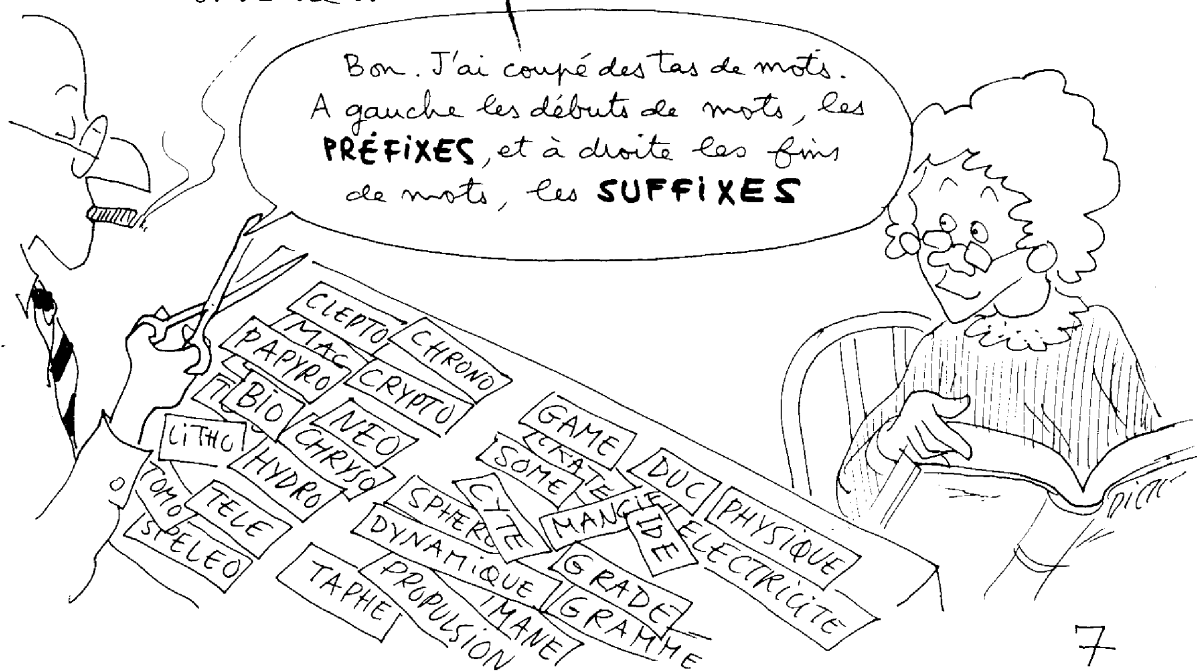 Bon. J'ai coupé des tas de mots.
A gauche les débuts de mots, les
PRÉFIXES, et à droite les fins
de mots, les SUFFIXES
CLEPTO
CHRONO
MAC
PAPYRO
CRYPTO
BIO
NEO
LITHO
CHRYSO
HYDRO
TOMO
TELE
SPELEO
GAME
CRATE
SOME
DUC
PHYSIQUE
CYTE
MANCIE
IDE
SPHERE
ELECTRICITE
DYNAMIQUE
GRADE
GRAMME
TAPHE
PROPULSION
MANE
DICT
7